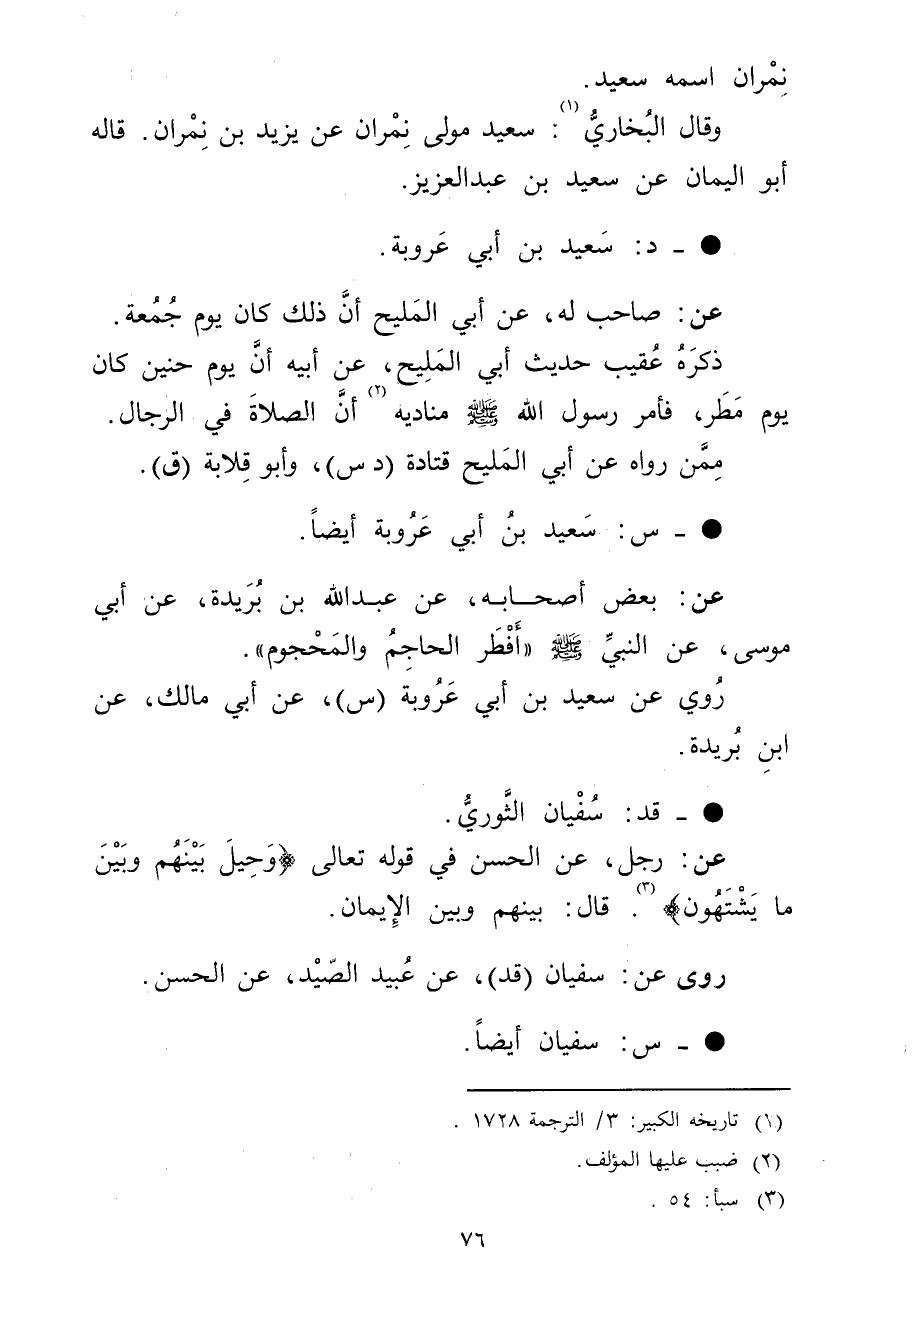 نِمْران اسمه سعيد.
وقال البُخاريُّ(١): سعيد مولى نِمْران عن يزيد بن نِمْران. قاله
أبو اليمان عن سعيد بن عبدالعزيز.
● ـ د: سَعيد بن أبي عَروبة.
عن: صاحب له، عن أبي المَليح أنَّ ذلك كان يوم جُمُعة.
ذكرَهُ عُقيب حديث أبي المَلِيح، عن أبيه أنَّ يوم حنين كان
يوم مَطَر، فأمر رسول الله ﷺ مناديه(٢) أنَّ الصلاةَ في الرحال.
مِمَّن رواه عن أبي المَليح قتادة (د س)، وأبو قِلابة (ق).
● ـ س: سَعيد بنُ أبي عَرُوبة أيضاً.
عن: بعض أصحـابـه، عن عبـدالله بن بُرَيدة، عن أبي
موسى، عن النبيِّ ﷺ «أَفْطَر الحاجِمُ والمَحْجوم».
رُوي عن سعيد بن أبي عَرُوبة (س)، عن أبي مالك، عن
ابنِ بُريدة.
● ـ قد: سُفْيان الثَّوريُّ.
عن: رجل، عن الحسن في قوله تعالى ﴿وَحِيلَ بَيْنَهُم وبَيْنَ
ما يَشْتَهُون﴾(٣). قال: بينهم وبين الإِيمان.
روى عن: سفيان (قد)، عن عُبيد الصّيْد، عن الحسن.
● ـ س: سفيان أيضاً.
(١) تاريخه الكبير: ٣/ الترجمة ١٧٢٨ .
(٢) ضبب عليها المؤلف.
(٣) سبأ: ٥٤ .
٧٦